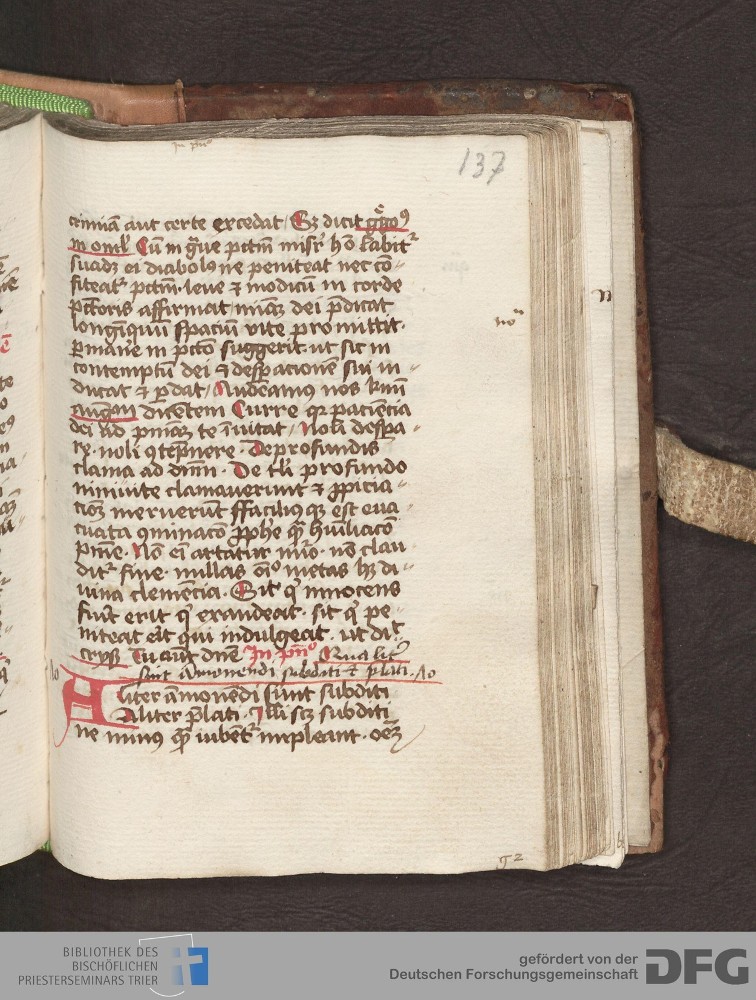 in pͥnͦ
137
criminā aut certe excedat / Sꝫ dicit gͣgoꝰ
in omlˀ Cū in gͣue pctm̄ misˀ hō labitˀ
suadꝫ ei diabolꝰ ne peniteat nec cō-
fiteatˀ pctm̄ · leue ⁊ modicū in corde
pctōris affirmat · miāꝫ dei p̄dicat
longīquū spaciū vite promittit ·
ꝑmane in pctō suggerit · ut sic in
contemptū dei ⁊ desꝑacionē sui in-
ducat ⁊ ꝑdat / Audeamus nos
augꝰ dicentem Curre qꝛ paciēcia
dei ad pn̄iaꝫ te īuitat · Noli despa-
re · noli ꝯtēpnere · De profundis
clama ad dn̄m · De tˀli profundo
niniuite clamauerunt ⁊ ꝓpicia-
cioꝫ meruerūt ffaciliꝰ qꝫ est eua-
cuata ꝯminacō ꝓphe qͣ hūiliacō
pn̄ie · Nō ei artatur nūo · nō clau-
ditˀ fine · nullas oīo metas hꝫ di-
uina clemēcia · Sit qͥ innocens
fiūt erit qͥ exaudeat · sit qͥ pe-
niteat eīt qui indulgeat · ut dic
crysͥ · Tu āut dn̄e In pͥnͦ Qualitˀ
sint Amonendi subditi ⁊ plati · Ao
Aliter āmonēdi sunt subditi
Aliter p̄lati · Illi scꝫ subditi
ne minꝰ qͣ iubētˀ impleant · oēꝫ
noͣ
n
g 2
BIBLIOTHEK DES
BISCHÖFLICHEN
PRIESTERSEMINARS TRIER
gefördert von der
Deutschen Forschungsgemeinschaft
DFG